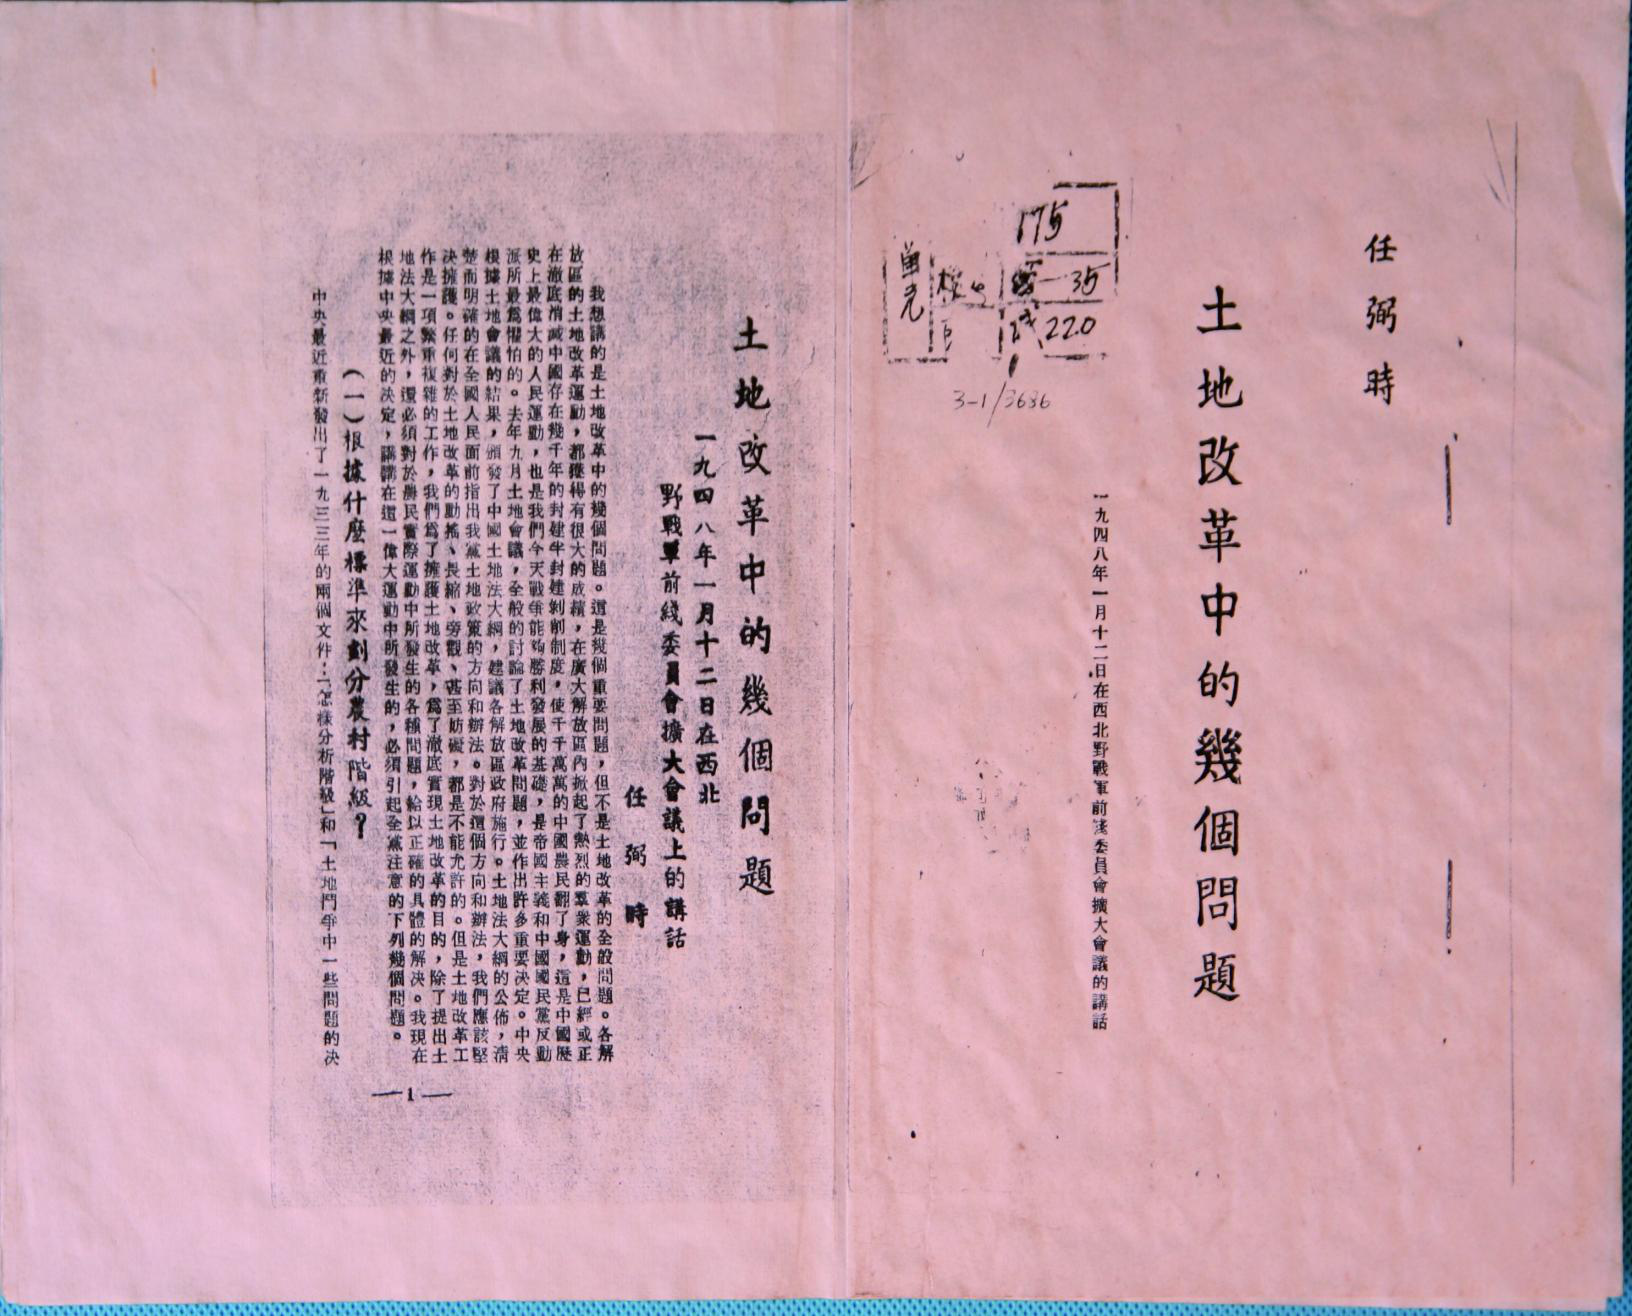 任弼時
土地改革中的幾個問題
一九四八年一月十二日在西北野戰軍前淺委員會擴大會議的講話
175
35
220
3-1/3686
土地改革中的幾個問題
一九四八年一月十二日在西北
野戰軍前綫委員會擴大會議上的講話
任弼時
我想講的是土地改革中的幾個問題。這是幾個重要問題，但不是土地改革的全般問題。各解
放區的土地改革運動，都獲得有很大的成績，在廣大解放區內掀起了熱烈的羣衆運動，已經或正
在澈底消滅中國存在幾千年的封建半封建剝削制度，使千千萬萬的中國農民翻了身，這是中國歷
史上最偉大的人民運動，也是我們今天戰爭能夠勝利發展的基礎，是帝國主義和中國國民黨反動
派所最爲懼怕的。去年九月土地會議，全般的討論了土地改革問題，並作出許多重要決定。中央
根據土地會議的結果，頒發了中國土地法大綱，建議各解放區政府施行。土地法大綱的公佈，清
楚而明確的在全國人民面前指出我黨土地政策的方向和辦法。對於這個方向和辦法，我們應該堅
決擁護。任何對於土地改革的動搖、畏縮、旁觀、甚至妨礙，都是不能允許的。但是土地改革工
作是一項繁重複雜的工作，我們爲了擁護土地改革，爲了澈底實現土地改革的目的，除了提出土
地法大綱之外，還必須對於農民實際運動中所發生的各種問題，給以正確的具體的解決。我現在
根據中央最近的決定，講講在這一偉大運動中所發生的，必須引起全黨注意的下列幾個問題。
（一）根據什麼標準來劃分農村階級？
中央最近重新發出了一九三三年的兩個文件：「怎樣分析階級」和「土地鬥爭中一些問題的決
—1—